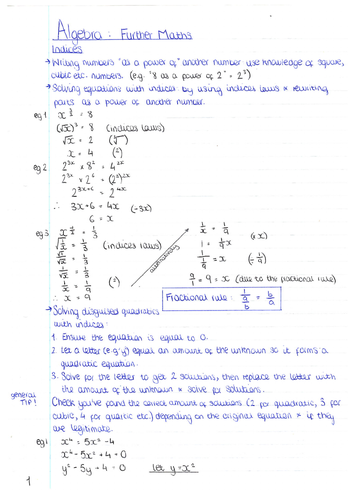 Algebra : Further Maths
Indices
→ Writing numbers "as a power of" another number use knowledge of square,
cubic etc. numbers. (e.g. '8 as a power of 2' = 2³)
→ Solving equations with indices: by using indices laws & rewriting
parts as a power of another number.
eg 1 x^(3/2) = 8
(√x)³ = 8 (indices laws)
√x = 2 (∛)
x = 4 (²)
eg 2 2^(3x) × 8² = 4^(2x)
2^(3x) × 2⁶ = (2²)^(2x)
2^(3x+6) = 2^(4x)
∴ 3x+6 = 4x (-3x)
6 = x
eg 3
(indices laws)
1/√x = 1/3
1/x = 1/9 (²)
∴ x = 9
1/x = 1/9 (×x)
1 = 1/9 x
9/1 = 9 = x (due to the fractional rule)
Fractional rule : 1/(a/b) = b/a
→ Solving disguised quadratics
with indices:
1. Ensure the equation is equal to 0.
2. Let a letter (e.g. y) equal an amount of the unknown so it forms a
quadratic equation.
3. Solve for the letter to get 2 solutions, then replace the letter with
the amount of the unknown & solve for solutions.
general TIP!
Check you've found the correct amount of solutions (2 for quadratic, 3 for
cubic, 4 for quartic etc.) depending on the original equation & if they
are legitimate.
eg 1 x⁴ = 5x² - 4
x⁴ - 5x² + 4 = 0
y² - 5y + 4 = 0 let y = x²
1